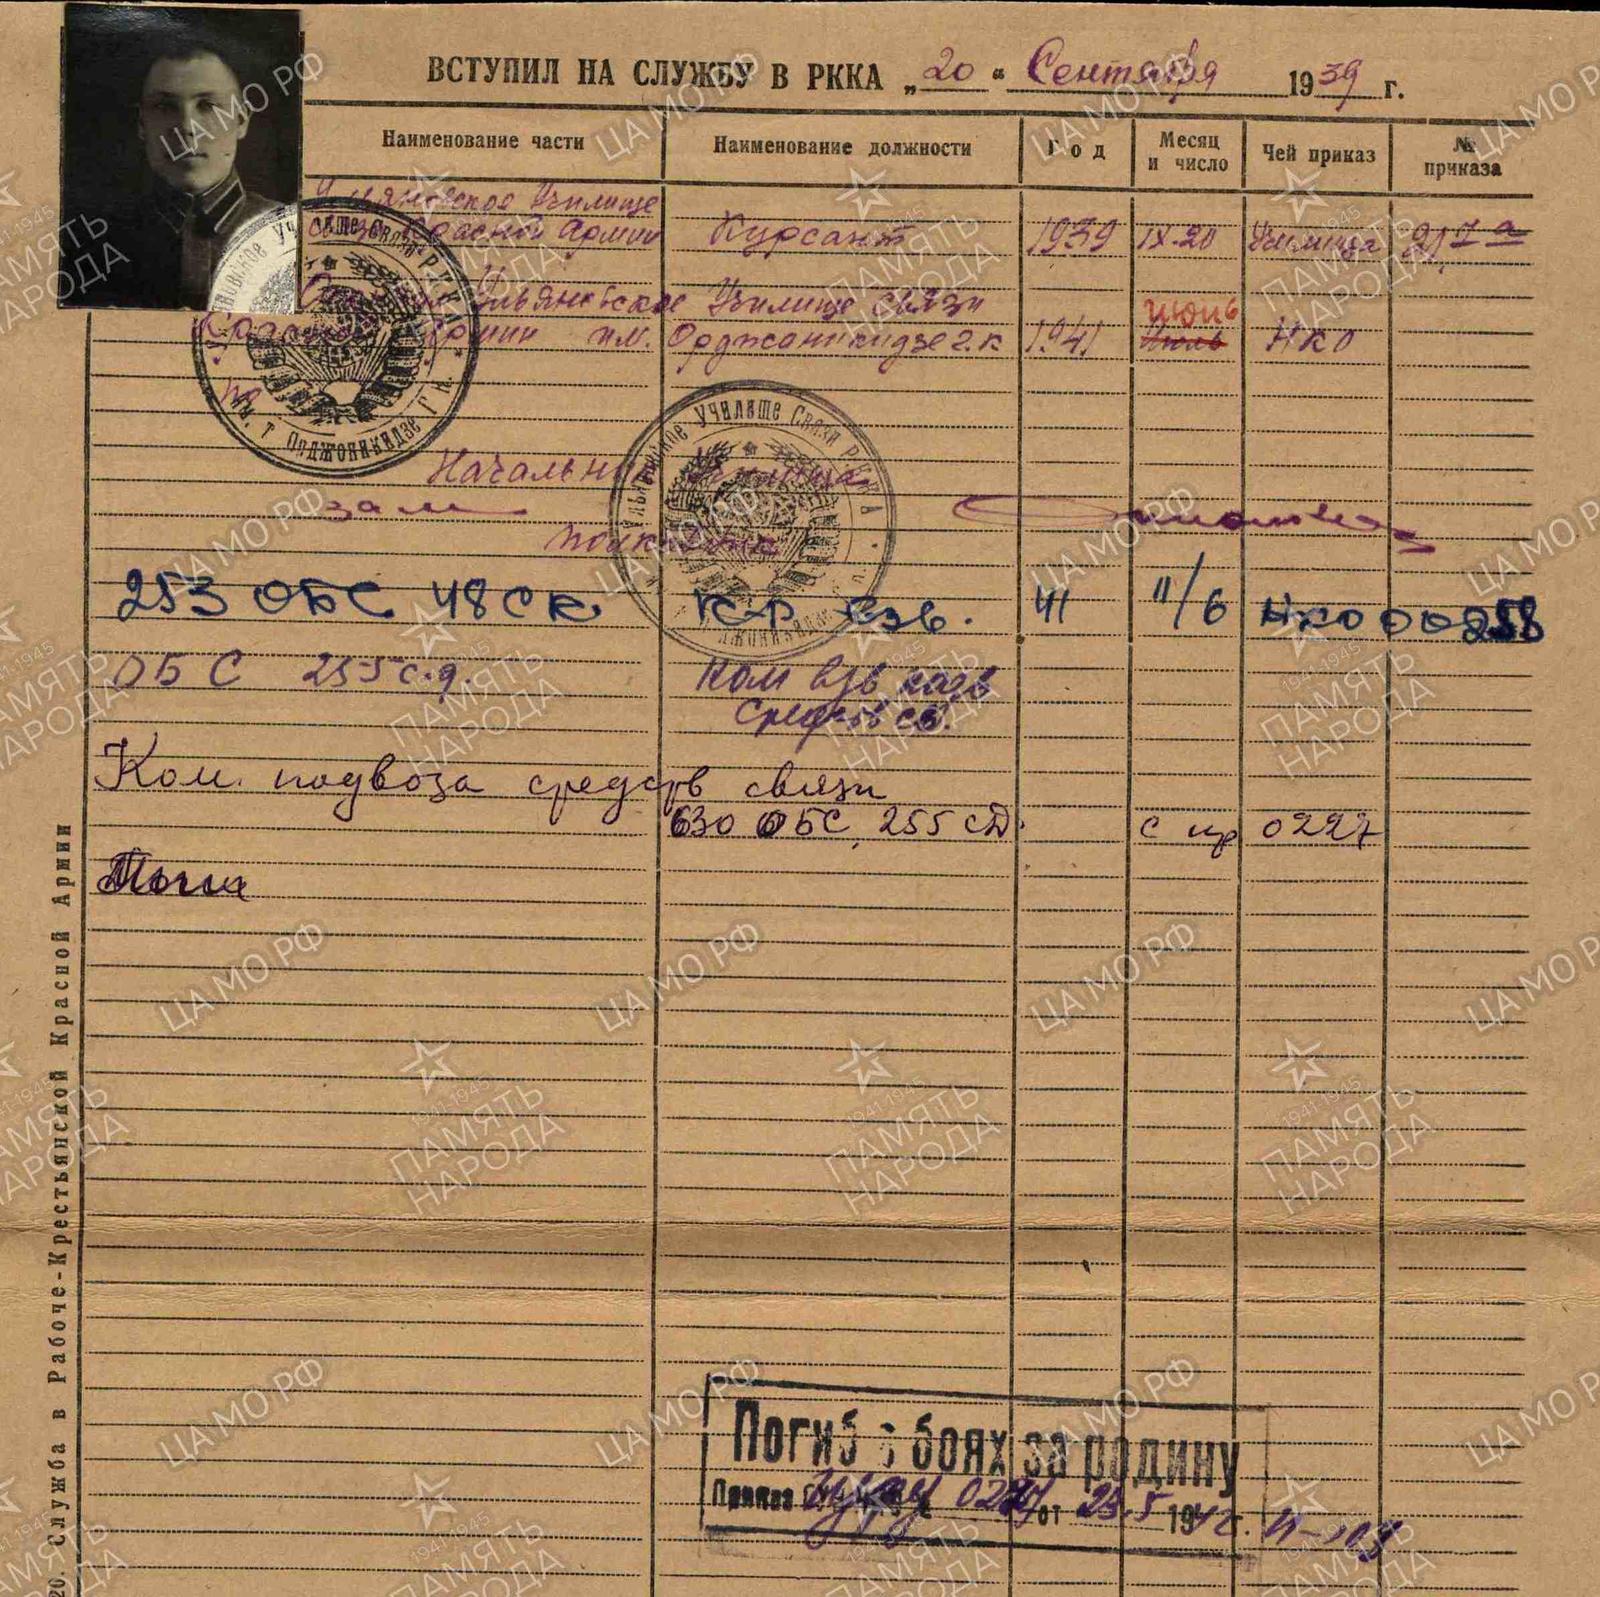 ВСТУПИЛ НА СЛУЖБУ В РККА „20“ Сентября 1939 г.
Наименование части Наименование должности Год Месяц и число Чей приказ № приказа
Ульяновское Училище
связи Красной Армии Курсант 1939 IX-20 Училища
Ульяновское Училище связи июнь
Армии им. Орджоникидзе г.к 1941 Июль НКО
по
Начальник Училища
зам
полковник
253 ОБС 48 СК К-р взв. 41 11/6 НКО 00258
ОБС 255 с.д. Ком взв подв
средств св.
Ком. подвоза средств связи
630 ОБС 255 СД. с пр 0227
Погиб в боях за родину
Приказ от 23.5 1942 г.
20. Служба в Рабоче-Крестьянской Красной Армии
Ульяновское Училище Связи РККА
им. т. Орджоникидзе Г.К.
Ульяновское Училище Связи РККА
ЦА МО РФ
1941-1945
ПАМЯТЬ
НАРОДА